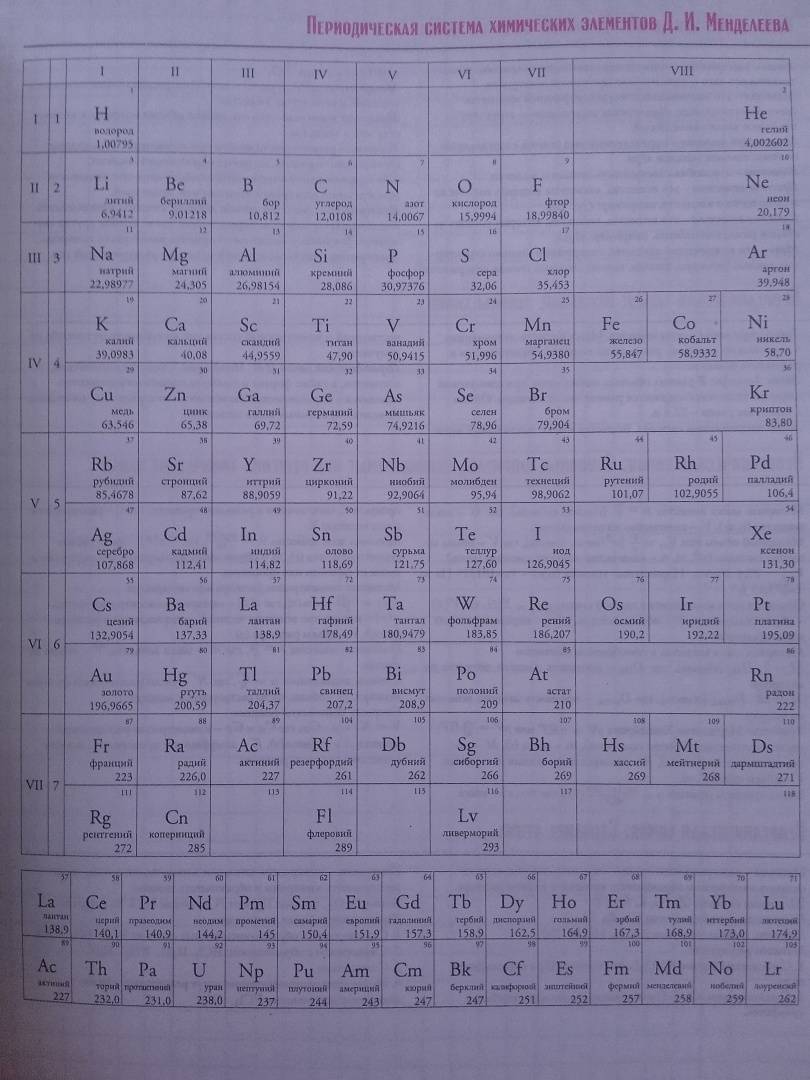 Периодическая система химических элементов Д. И. Менделеева
I II III IV V VI VII VIII
1 2
I 1 H He
водород гелий
1,00795 4,002602
3 4 5 6 7 8 9 10
II 2 Li Be B C N O F Ne
литий бериллий бор углерод азот кислород фтор неон
6,9412 9,01218 10,812 12,0108 14,0067 15,9994 18,99840 20,179
11 12 13 14 15 16 17 18
III 3 Na Mg Al Si P S Cl Ar
натрий магний алюминий кремний фосфор сера хлор аргон
22,98977 24,305 26,98154 28,086 30,97376 32,06 35,453 39,948
19 20 21 22 23 24 25 26 27 28
K Ca Sc Ti V Cr Mn Fe Co Ni
калий кальций скандий титан ванадий хром марганец железо кобальт никель
39,0983 40,08 44,9559 47,90 50,9415 51,996 54,9380 55,847 58,9332 58,70
IV 4
29 30 31 32 33 34 35 36
Cu Zn Ga Ge As Se Br Kr
медь цинк галлий германий мышьяк селен бром криптон
63,546 65,38 69,72 72,59 74,9216 78,96 79,904 83,80
37 38 39 40 41 42 43 44 45 46
Rb Sr Y Zr Nb Mo Tc Ru Rh Pd
рубидий стронций иттрий цирконий ниобий молибден технеций рутений родий палладий
85,4678 87,62 88,9059 91,22 92,9064 95,94 98,9062 101,07 102,9055 106,4
V 5
47 48 49 50 51 52 53 54
Ag Cd In Sn Sb Te I Xe
серебро кадмий индий олово сурьма теллур иод ксенон
107,868 112,41 114,82 118,69 121,75 127,60 126,9045 131,30
55 56 57 72 73 74 75 76 77 78
Cs Ba La Hf Ta W Re Os Ir Pt
цезий барий лантан гафний тантал вольфрам рений осмий иридий платина
132,9054 137,33 138,9 178,49 180,9479 183,85 186,207 190,2 192,22 195,09
VI 6
79 80 81 82 83 84 85 86
Au Hg Tl Pb Bi Po At Rn
золото ртуть таллий свинец висмут полоний астат радон
196,9665 200,59 204,37 207,2 208,9 209 210 222
87 88 89 104 105 106 107 108 109 110
Fr Ra Ac Rf Db Sg Bh Hs Mt Ds
франций радий актиний резерфордий дубний сиборгий борий хассий мейтнерий дармштадтий
223 226,0 227 261 262 266 269 269 268 271
VII 7
111 112 113 114 115 116 117 118
Rg Cn Fl Lv
рентгений коперниций флеровий ливерморий
272 285 289 293
57 58 59 60 61 62 63 64 65 66 67 68 69 70 71
La Ce Pr Nd Pm Sm Eu Gd Tb Dy Ho Er Tm Yb Lu
лантан церий празеодим неодим прометий самарий европий гадолиний тербий диспрозий гольмий эрбий тулий иттербий лютеций
138,9 140,1 140,9 144,2 145 150,4 151,9 157,3 158,9 162,5 164,9 167,3 168,9 173,0 174,9
89 90 91 92 93 94 95 96 97 98 99 100 101 102 103
Ac Th Pa U Np Pu Am Cm Bk Cf Es Fm Md No Lr
актиний торий протактиний уран нептуний плутоний америций кюрий берклий калифорний эйнштейний фермий менделевий нобелий лоуренсий
227 232,0 231,0 238,0 237 244 243 247 247 251 252 257 258 259 262